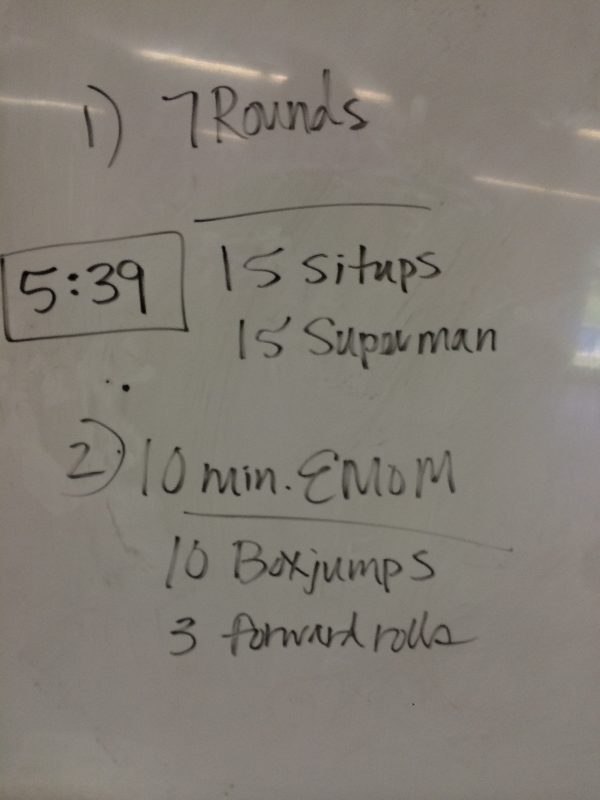 1) 7 Rounds
5:39
15 situps
15 Superman
2) 10 min. EMOM
10 Boxjumps
3 forward rolls